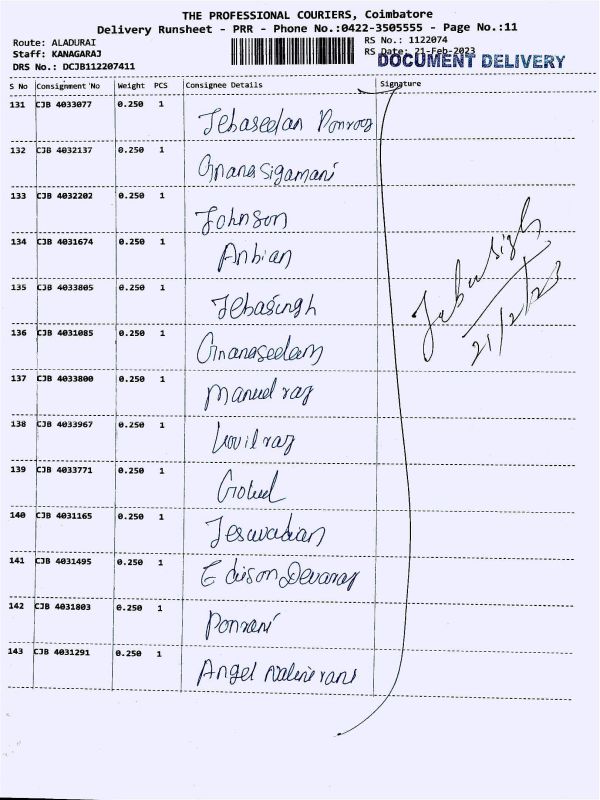 THE PROFESSIONAL COURIERS, Coimbatore
Delivery Runsheet - PRR - Phone No.:0422-3505555 - Page No.:11
Route: ALADURAI RS No.: 1122074
Staff: KANAGARAJ RS Date: 21-Feb-2023
DRS No.: DCJB112207411 DOCUMENT DELIVERY
S No Consignment No Weight PCS Consignee Details Signature
131 CJB 4033077 0.250 1 Jebaseelan Ponraj
132 CJB 4032137 0.250 1 Gnanasigamani
133 CJB 4032202 0.250 1 Johnson
134 CJB 4031674 0.250 1 Anbian
135 CJB 4033805 0.250 1 Jebasingh
136 CJB 4031085 0.250 1 Gnanaseelam
137 CJB 4033800 0.250 1 Manuel raj
138 CJB 4033967 0.250 1 raj
139 CJB 4033771 0.250 1 Gokul
140 CJB 4031165 0.250 1
141 CJB 4031495 0.250 1 Edison Devaraj
142 CJB 4031803 0.250 1 Ponrani
143 CJB 4031291 0.250 1 Angel Nalini rani
21/2/23